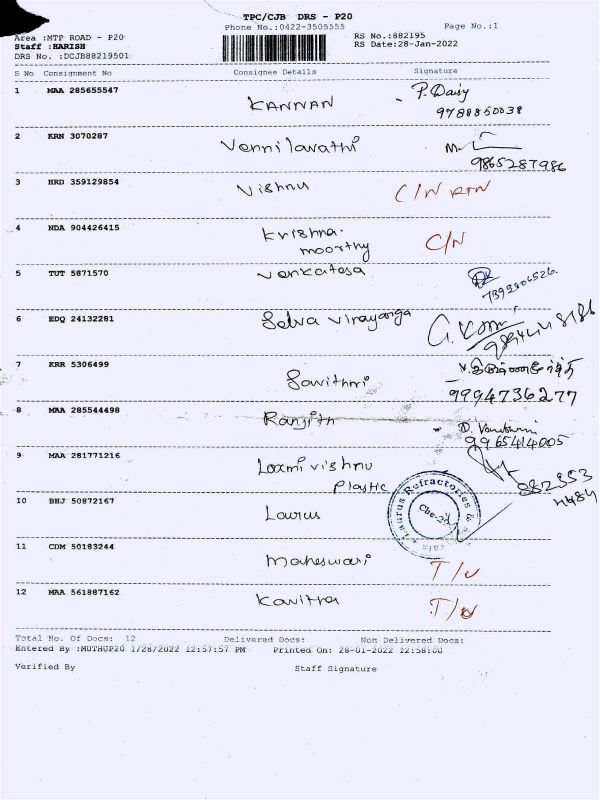 TPC/CJB DRS - P20
Phone No.:0422-3505555
Page No.:1
Area :MTP ROAD - P20
Staff :HARISH
DRS No. :DCJB88219501
RS No.:882195
RS Date:28-Jan-2022
S No Consignment No Consignee Details Signature
1 MAA 285655547 KANNAN P. Daisy
9788860038
2 KRN 3070287 Vennilavathi
9865287986
3 HRD 359129854 Vishnu C/N RTN
4 NDA 904426415 Krishna.
moorthy C/N
5 TUT 5871570 Venkatesa
7392806526
6 EDQ 24132281 Selva Virayanga
7 KRR 5306499 Savithri
9994736277
8 MAA 285544498 Ranjith D.
9965414005
9 MAA 281771216 Laxmi vishnu
Plastic
882353
4484
10 BHJ 50872167 Laurus Laurus Refractories &
11 CDM 50183244 Maheswari T/U
12 MAA 561887162 Kavitha T/U
Total No. Of Docs: 12 Delivered Docs: Non Delivered Docs:
Entered By :MUTHUP20 1/28/2022 12:57:57 PM Printed On: 28-01-2022 12:58:00
Verified By Staff Signature